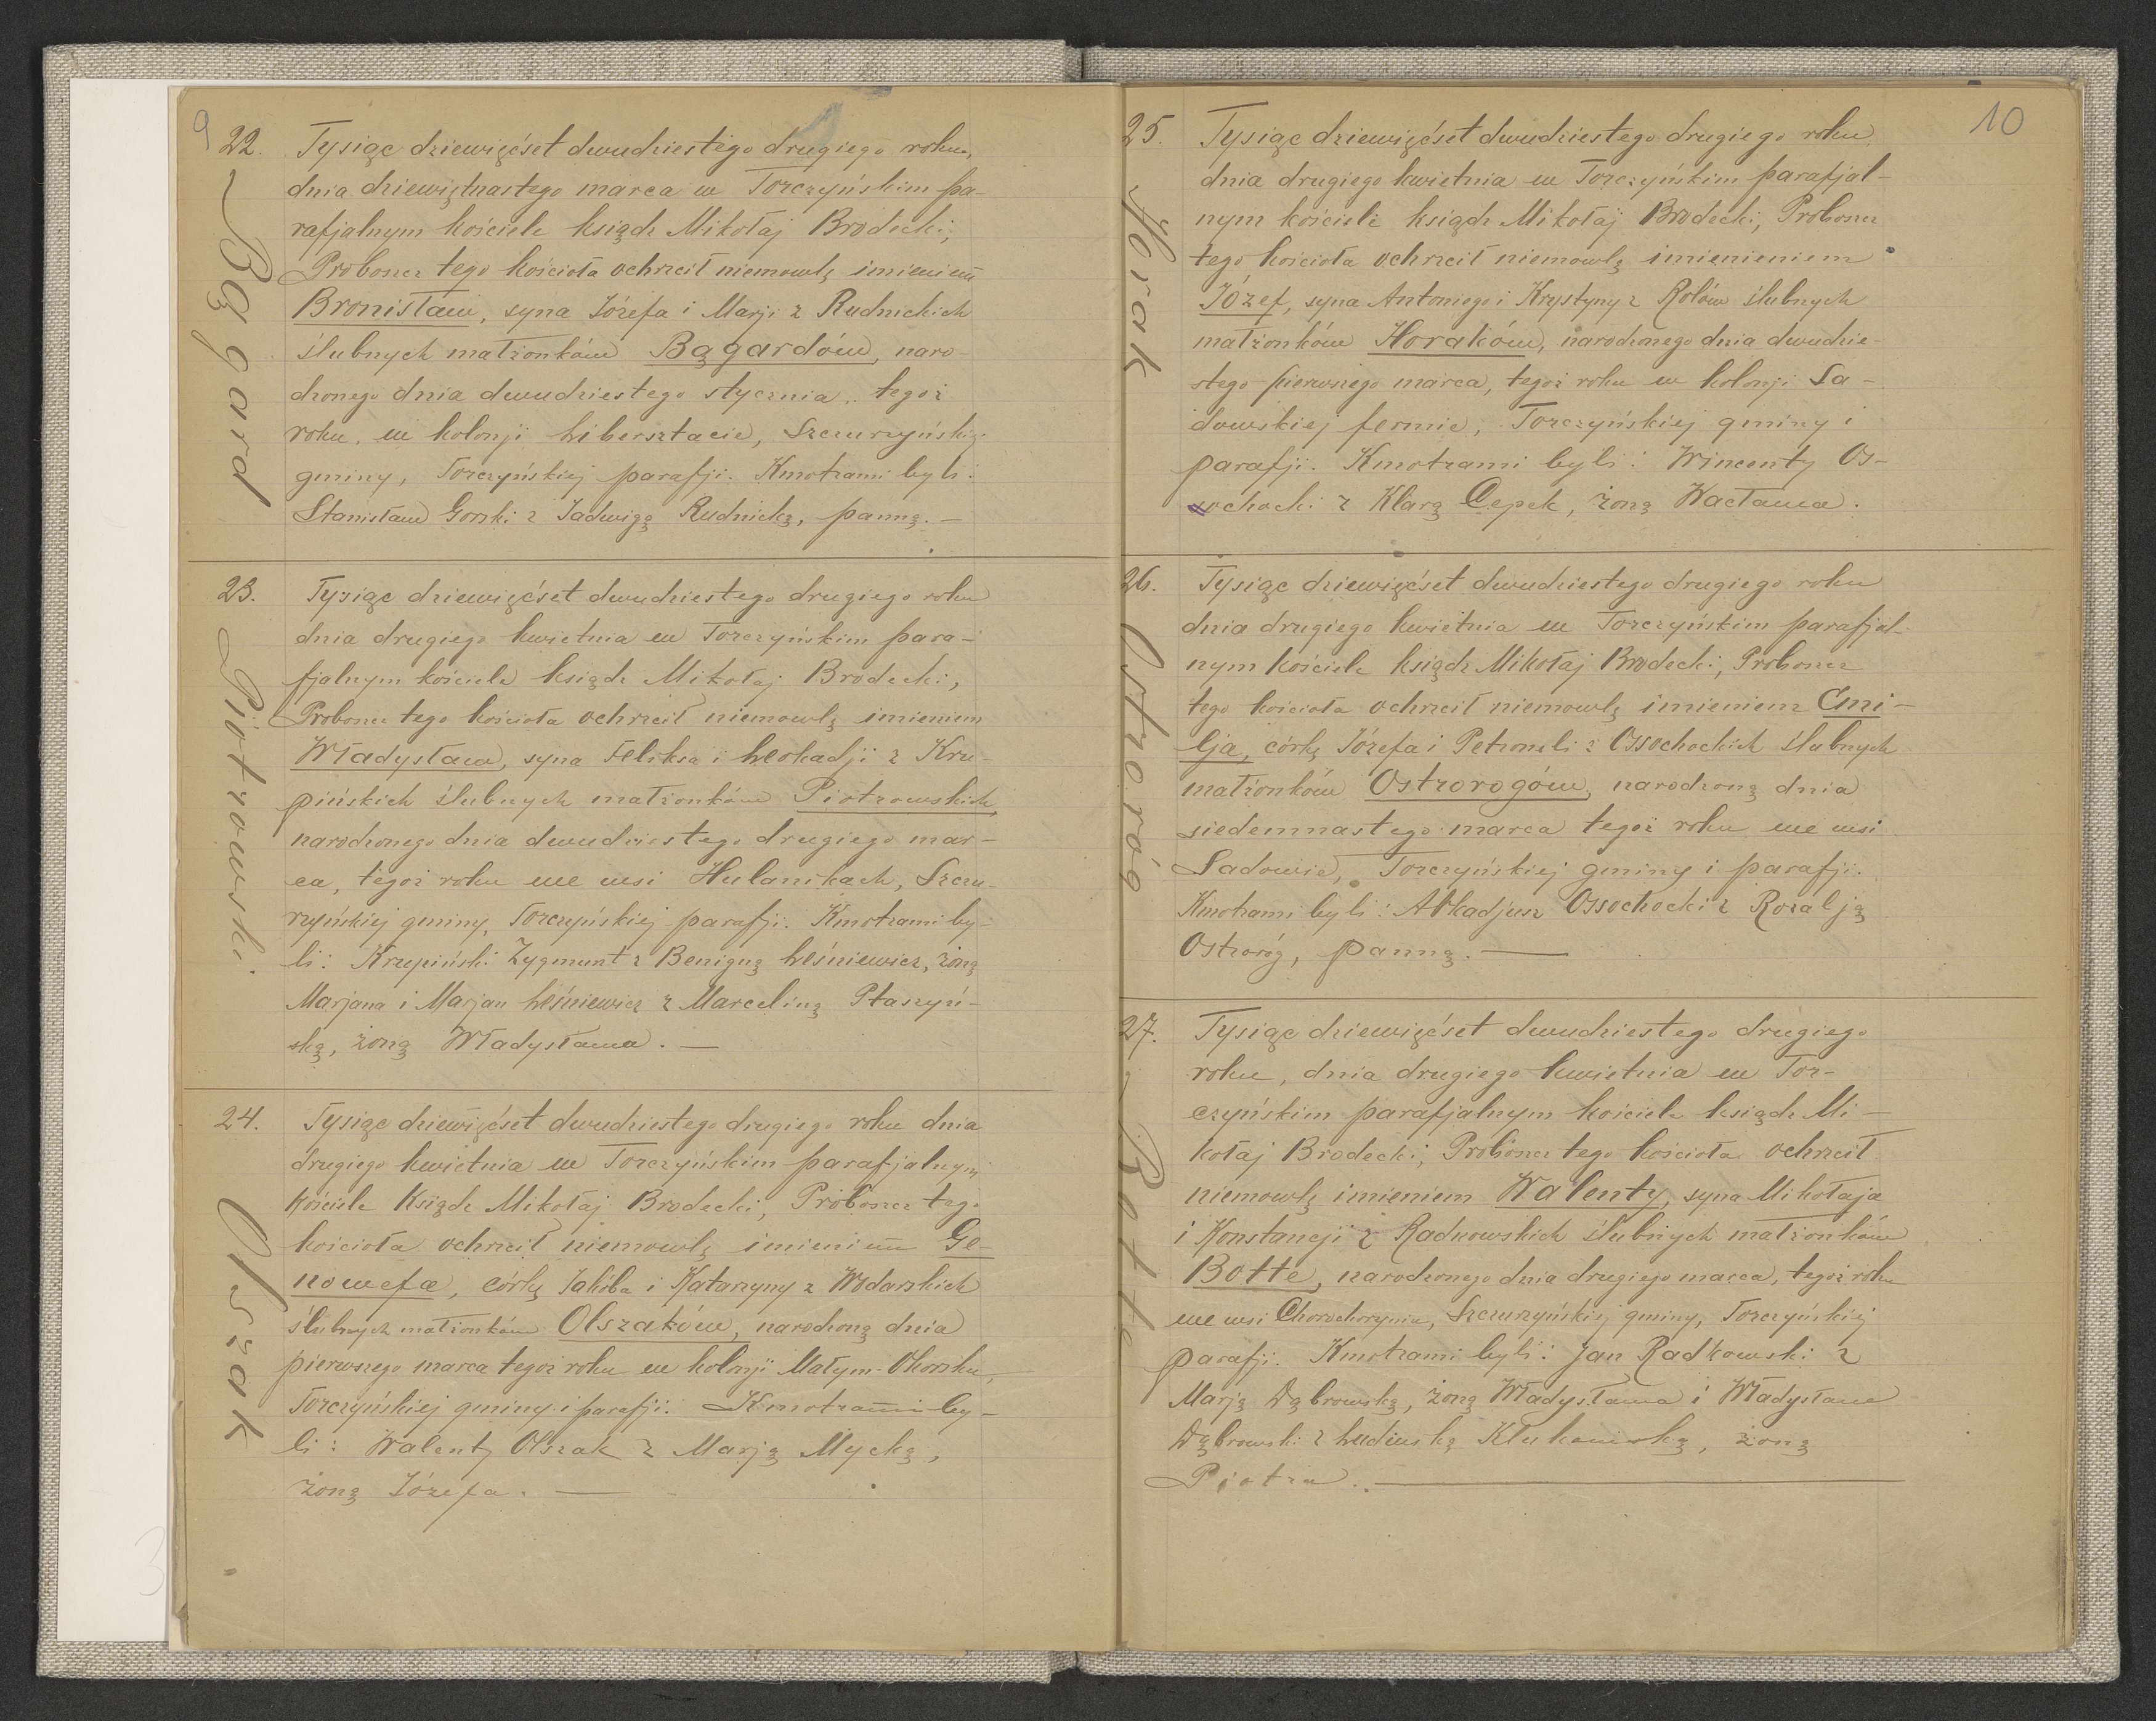 9
22.
Bągard
Tysiąc dziewięćset dwudziestego drugiego roku,
dnia dziewiętnastego marca w Torczyńskim pa-
rafjalnym kościele ksiądz Mikołaj Brodecki,
Proboszcz tego kościoła ochrzcił niemowlę imieniem
Bronisław, syna Józefa i Marji z Rudnickich
ślubnych małżonków Bągardów, naro-
dzonego dnia dwudziestego stycznia, tegoż
roku, w kolonji Libersztacie, Szczurzyńskiej
gminy, Torczyńskiej parafji. Kmotrami byli:
Stanisław Gorski z Jadwigą Rudnicką, panną. —
23.
Piotrowski.
Tysiąc dziewięćset dwudziestego drugiego roku
dnia drugiego kwietnia w Torczyńskim para-
fjalnym kościele ksiądz Mikołaj Brodecki,
Proboszcz tego kościoła ochrzcił niemowlę imieniem
Władysław, syna Feliksa i Leokadji z Kru-
pińskich ślubnych małżonków Piotrowskich,
narodzonego dnia dwudziestego drugiego mar-
ca, tegoż roku we wsi Hulanikach, Szczu-
rzyńskiej gminy, Torczyńskiej parafji. Kmotrami by-
li: Krupiński Zygmunt z Benigną Leśniewicz, żoną
Marjana i Marjan Leśniewicz z Marceliną Ptaszyń-
ską, żoną Władysława. —
24.
Olszak
Tysiąc dziewięćset dwudziestego drugiego roku dnia
drugiego kwietnia w Torczyńskim parafjalnym
kościele Ksiądz Mikołaj Brodecki, Proboszcz tego
kościoła ochrzcił niemowlę imieniem Ge-
nowefa, córkę Jakóba i Katarzyny z Wodarskich
ślubnych małżonków Olszaków, narodzoną dnia
pierwszego marca tegoż roku w kolonji Małym-Okorsku,
Torczyńskiej gminy i parafji. Kmotrami by-
li: Walenty Olszak z Marją Mycką,
żoną Józefa. —
10
25.
Horak
Tysiąc dziewięćset dwudziestego drugiego roku,
dnia drugiego kwietnia w Torczyńskim parafjal-
nym kościele ksiądz Mikołaj Brodecki, Proboszcz
tego kościoła ochrzcił niemowlę imienieniem
Józef, syna Antoniego i Krystyny z Rolów ślubnych
małżonków Horaków, narodzonego dnia dwudzie-
stego pierwszego marca, tegoż roku w kolonji Sa-
dowskiej fermie, Torczyńskiej gminy i
parafji. Kmotrami byli: Wincenty Os-
sochocki z Klarą Cepek, żoną Wacława.
26.
Ostroróg
Tysiąc dziewięćset dwudziestego drugiego roku
dnia drugiego kwietnia w Torczyńskim parafjal-
nym kościele ksiądz Mikołaj Brodecki, Proboszcz
tego kościoła ochrzcił niemowlę imieniem Emi-
lja, córkę Józefa i Petroneli z Ossochockich ślubnych
małżonków Ostrorogów, narodzoną dnia
siedemnastego marca tegoż roku we wsi
Sadowie, Torczyńskiej gminy i parafji.
Kmotrami byli: Arkadjusz Ossochocki z Rozalją
Ostroróg, panną. —
27.
Botte
Tysiąc dziewięćset dwudziestego drugiego
roku, dnia drugiego kwietnia w Tor-
czyńskim parafjalnym kościele ksiądz Mi-
kołaj Brodecki, Proboszcz tego kościoła ochrzcił
niemowlę imieniem Walenty, syna Mikołaja
i Konstancji z Radkowskich ślubnych małżonków
Botte, narodzonego dnia drugiego marca, tegoż roku
we wsi Chorochoryniu, Szczurzyńskiej gminy, Torczyńskiej
parafji. Kmotrami byli: Jan Radkowski z
Marją Dąbrowską, żoną Władysława i Władysław
Dąbrowski z Ludwiką Klukowską, żoną
Piotra. —